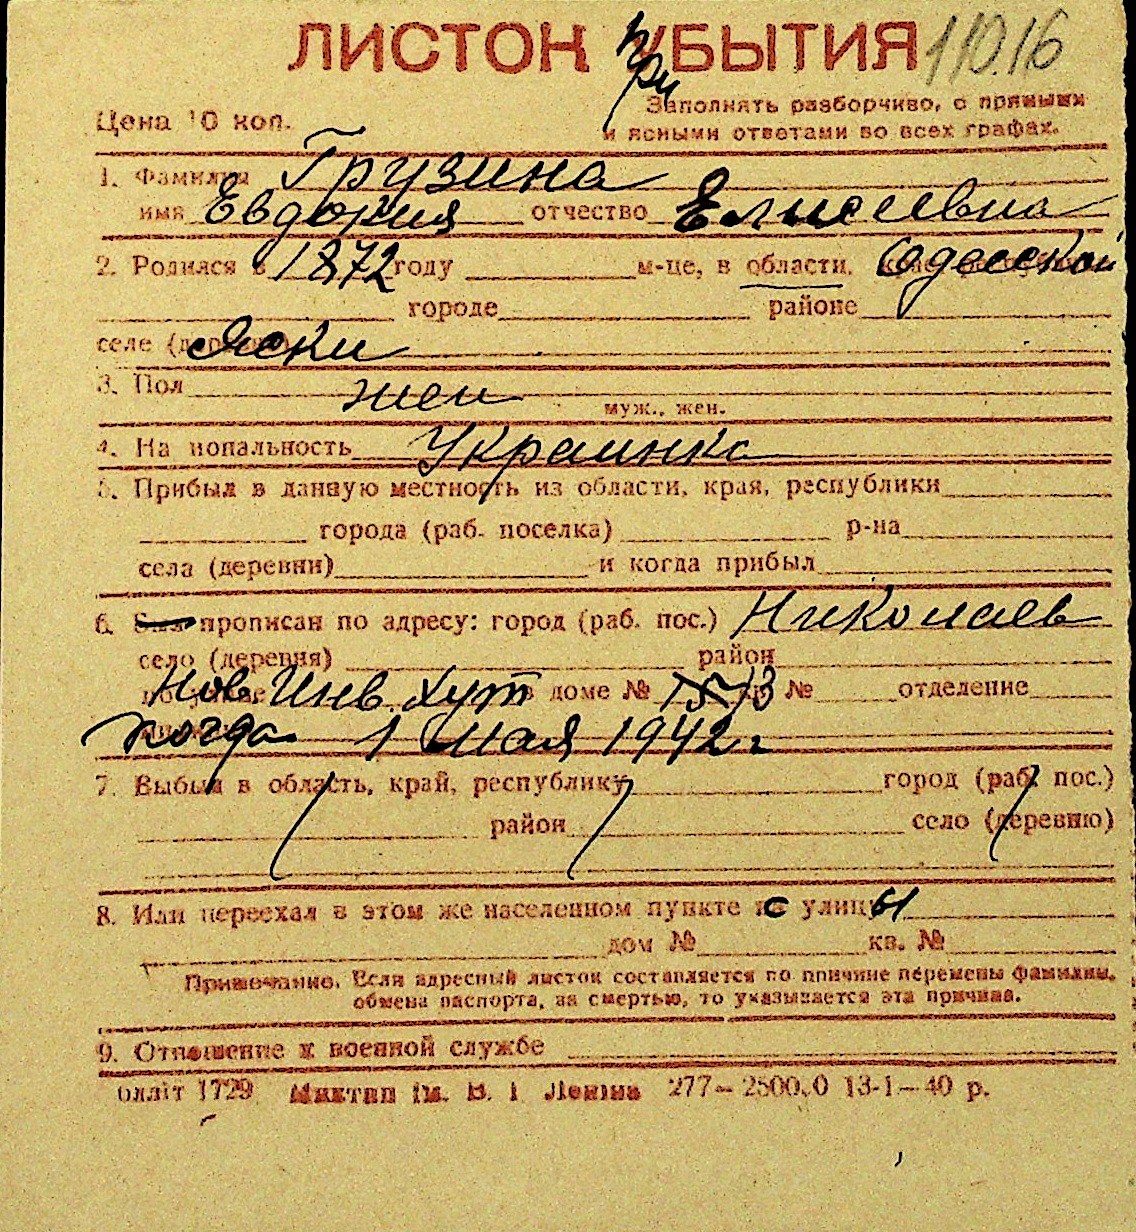 ЛИСТОК прибытия 11016
Цена 10 коп.
Заполнять разборчиво, с прямыми
и ясными ответами во всех графах.
1. Фамилия Грузина
имя Евдокия отчество Елисеевна
2. Родился в 1872 году м-це, в области, Одесской
городе районе
селе (деревне) Яски
3. Пол жен
муж., жен.
4. Национальность Украинка
5. Прибыл в данную местность из области, края, республики
города (раб. поселка) р-на
села (деревни) и когда прибыл
6. Был прописан по адресу: город (раб. пос.) Николаев
село (деревня) район
Нов. Инв. Хут в доме № 13 № отделение
когда 1 мая 1942 г
7. Выбыл в область, край, республику город (раб. пос.)
район село (деревню)
8. Или переехал в этом же населенном пункте с улицы
дом № кв. №
Примечание. Если адресный листок составляется по причине перемены фамилии,
обмена паспорта, за смертью, то указывается эта причина.
9. Отношение к военной службе
блліт 1729 Миктип ім. В. І Леніна 277—2500.0 13-1—40 р.